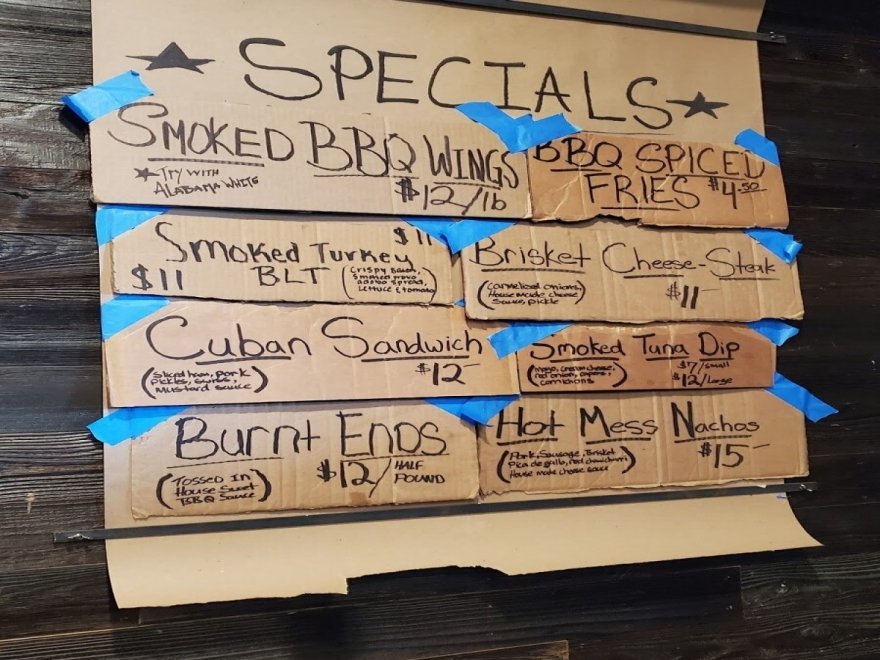 ★ SPECIALS ★
SMOKED BBQ WINGS
★ TRY WITH
ALABAMA WHITE
$12/lb
BBQ SPICED
FRIES $4.50
Smoked Turkey $11
$11 BLT
(Crispy Bacon,
Smoked provo
adobo spread,
Lettuce & tomato)
Brisket Cheese-Steak
(Carmelized onions
House made cheese
Sauce, pickle)
$11
Cuban Sandwich
(Sliced ham, pork
pickles, swiss,
mustard sauce)
$12
Smoked Tuna Dip
(Mayo, cream cheese,
red onion, capers,
cornichons)
$7/small
$12/Large
Burnt Ends
(Tossed In
House Sweet
BBQ Sauce)
$12/ HALF
POUND
Hot Mess Nachos
(Pork, Sausage, Brisket
Pico de gallo, red
House made cheese sauce)
$15